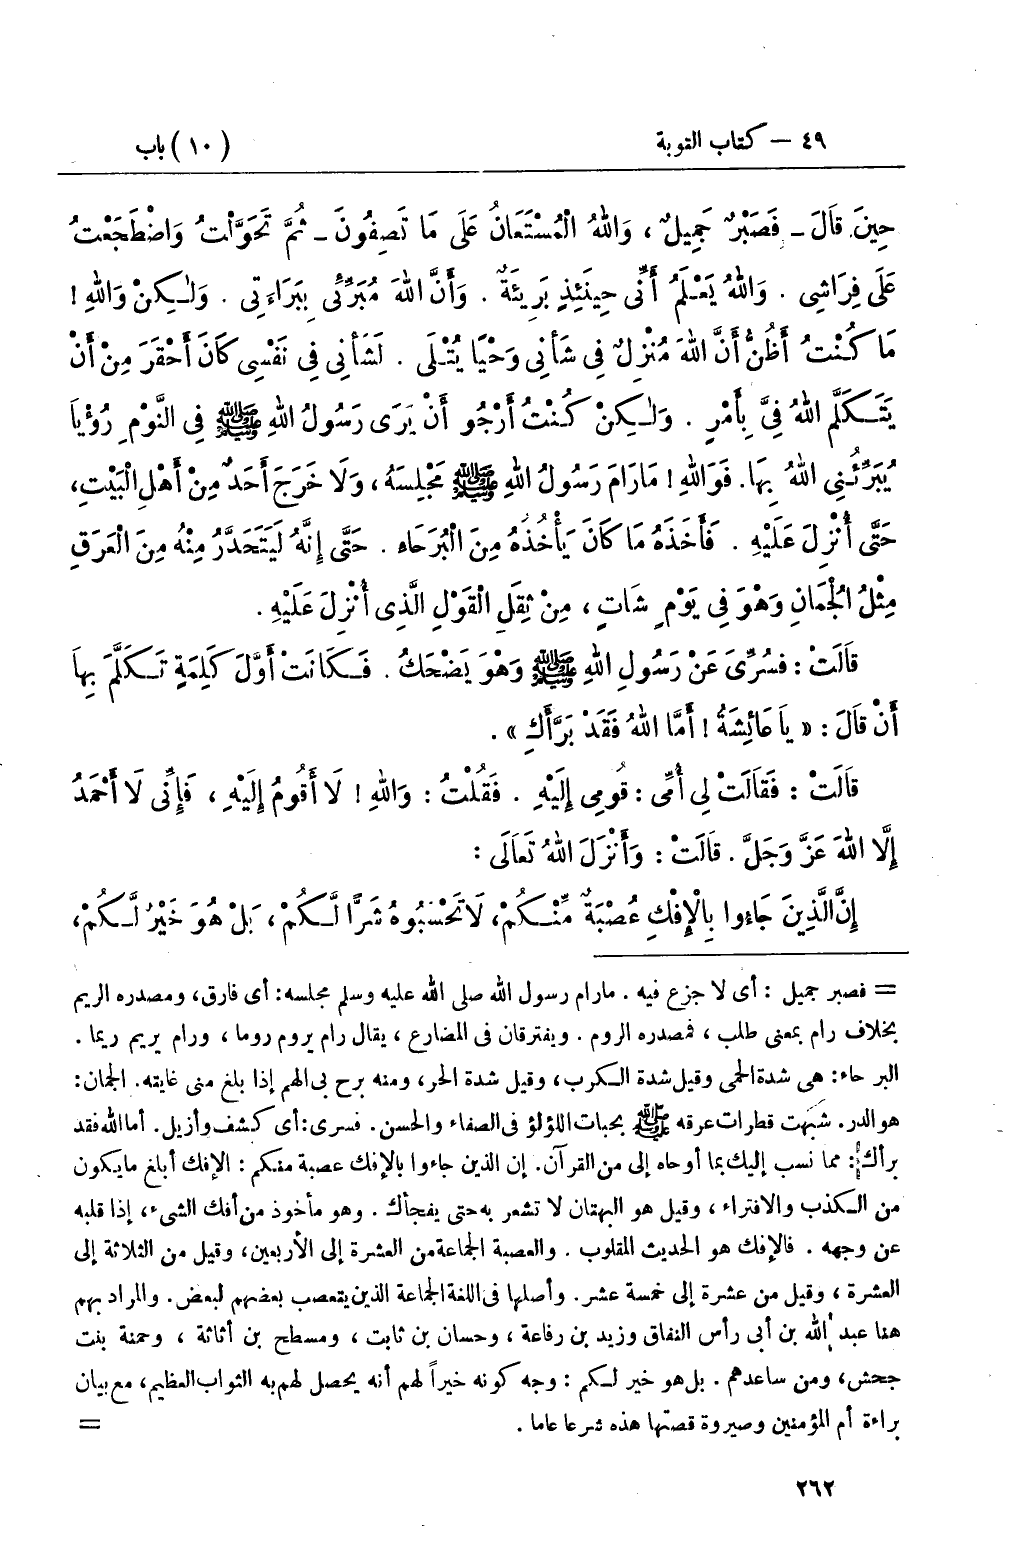 ٤٩ – كتاب التوبة (١٠) باب
حِينَ قَالَ ـ فَصَبْرٌ جَمِيلٌ ، وَاللهُ الْمُسْتَعَانُ عَلَى مَا تَصِفُونَ ـ ثُمَّ تَحَوَّلْتُ وَاضْطَجَعْتُ
عَلَى فِرَاشِي . وَاللهُ يَعْلَمُ أَنِّي حِينَئِذٍ بَرِيئَةٌ . وَأَنَّ اللهَ مُبَرِّئِي بِبَرَاءَتِي . وَلَـٰكِنْ وَاللهِ !
مَا كُنْتُ أَظُنُّ أَنَّ اللهَ مُنْزِلٌ فِي شَأْنِي وَحْيًا يُتْلَى . لَشَأْنِي فِي نَفْسِي كَانَ أَحْقَرَ مِنْ أَنْ
يَتَكَلَّمَ اللهُ فِيَّ بِأَمْرٍ . وَلَـٰكِنْ كُنْتُ أَرْجُو أَنْ يَرَى رَسُولُ اللهِ ﷺ فِي النَّوْمِ رُؤْيَا
يُبَرِّئُنِي اللهُ بِهَا. فَوَاللهِ ! مَارَامَ رَسُولُ اللهِ ﷺ مَجْلِسَهُ ، وَلَا خَرَجَ أَحَدٌ مِنْ أَهْلِ الْبَيْتِ،
حَتَّى أُنْزِلَ عَلَيْهِ . فَأَخَذَهُ مَا كَانَ يَأْخُذُهُ مِنَ الْبُرَحَاءِ . حَتَّى إِنَّهُ لَيَتَحَدَّرُ مِنْهُ مِنَ الْعَرَقِ
مِثْلُ الْجُمَانِ وَهْوَ فِي يَوْمٍ شَاتٍ ، مِنْ ثِقَلِ الْقَوْلِ الَّذِي أُنْزِلَ عَلَيْهِ .
قَالَتْ : فَسُرِّيَ عَنْ رَسُولِ اللهِ ﷺ وَهْوَ يَضْحَكُ . فَكَانَتْ أَوَّلَ كَلِمَةٍ تَكَلَّمَ بِهَا
أَنْ قَالَ : « يَا عَائِشَةُ ! أَمَّا اللهُ فَقَدْ بَرَّأَكِ » .
قَالَتْ : فَقَالَتْ لِي أُمِّي : قُومِي إِلَيْهِ . فَقُلْتُ : وَاللهِ ! لَا أَقُومُ إِلَيْهِ ، فَإِنِّي لَا أَحْمَدُ
إِلَّا اللهَ عَزَّ وَجَلَّ . قَالَتْ : وَأَنْزَلَ اللهُ تَعَالَى :
إِنَّ الَّذِينَ جَاءُوا بِالْإِفْكِ عُصْبَةٌ مِّنْكُمْ، لَا تَحْسَبُوهُ شَرًّا لَّكُمْ ، بَلْ هُوَ خَيْرٌ لَّكُمْ،
= فصبر جميل : أى لا جزع فيه . مارام رسول الله صلى الله عليه وسلم مجلسه: أى فارق، ومصدره الريم
بخلاف رام بمعنى طلب ، فمصدره الروم . ويفترقان فى المضارع ، يقال رام يروم روما ، ورام يريم ريما .
البرحاء: هى شدة الحمى وقيل شدة الكرب، وقيل شدة الحر، ومنه برح بى الهم إذا بلغ منى غايته. الجمان:
هو الدر. شبهت قطرات عرقه ﷺ بحبات اللؤلؤ فى الصفاء والحسن. فسرى: أى كشف وأزيل. أما الله فقد
برأك: مما نسب إليك بما أوحاه إلى من القرآن. إن الذين جاءوا بالإفك عصبة منكم : الإفك أبلغ ما يكون
من الكذب والافتراء ، وقيل هو البهتان لا تشعر به حتى يفجأك . وهو مأخوذ من أفك الشىء ، إذا قلبه
عن وجهه . فالإفك هو الحديث المقلوب . والعصبة الجماعة من العشرة إلى الأربعين، وقيل من الثلاثة إلى
العشرة ، وقيل من عشرة إلى خمسة عشر. وأصلها فى اللغة الجماعة الذين يتعصب بعضهم لبعض. والمراد بهم
هنا عبد الله بن أبى رأس النفاق وزيد بن رفاعة ، وحسان بن ثابت ، ومسطح بن أثاثة ، وحمنة بنت
جحش، ومن ساعدهم . بل هو خير لكم : وجه كونه خيراً لهم أنه يحصل لهم به الثواب العظيم، مع بيان
براءة أم المؤمنين وصيروة قصتها هذه شرعا عاما . =
٢٦٢